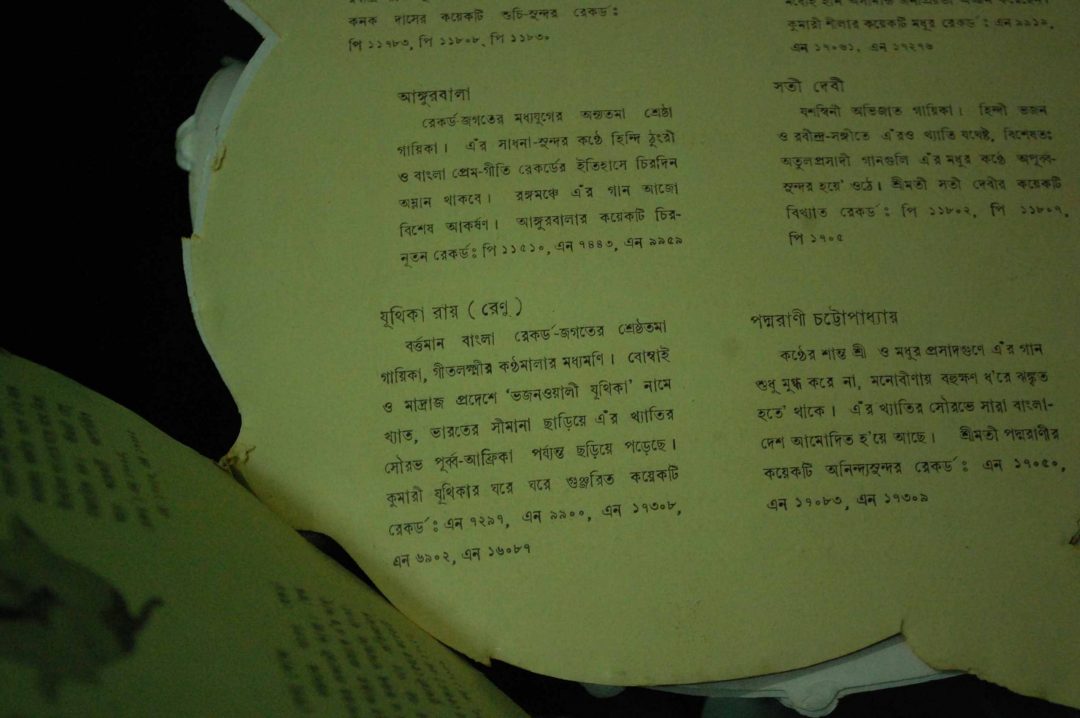 কনক দাসের কয়েকটি শুচি-সুন্দর রেকর্ড:
পি ১১৭৮৩, পি ১১৮০৮, পি ১১৮৩০
আঙ্গুরবালা
রেকর্ড-জগতের মধ্যযুগের অন্যতমা শ্রেষ্ঠা
গায়িকা। এঁর সাধনা-সুন্দর কণ্ঠে হিন্দি ঠুংরী
ও বাংলা প্রেম-গীতি রেকর্ডের ইতিহাসে চিরদিন
অম্লান থাকবে। রঙ্গমঞ্চে এঁর গান আজো
বিশেষ আকর্ষণ। আঙ্গুরবালার কয়েকটি চির-
নূতন রেকর্ড: পি ১১৫১০, এন ৭৪৪৩, এন ৯৯৫৯
যূথিকা রায় ( রেণু )
বর্ত্তমান বাংলা রেকর্ড-জগতের শ্রেষ্ঠতমা
গায়িকা, গীতলক্ষ্মীর কণ্ঠমালার মধ্যমণি। বোম্বাই
ও মাদ্রাজ প্রদেশে 'ভজনওয়ালী যূথিকা' নামে
খ্যাত, ভারতের সীমানা ছাড়িয়ে এঁর খ্যাতির
সৌরভ পূর্ব্ব-আফ্রিকা পর্য্যন্ত ছড়িয়ে পড়েছে।
কুমারী যূথিকার ঘরে ঘরে গুঞ্জরিত কয়েকটি
রেকর্ড: এন ৭২৯৭, এন ৯৯০০, এন ১৭৩০৮,
এন ৬৯০২, এন ১৬০৮৭
কুমারী শীলার কয়েকটি মধুর রেকর্ড: এন ৯৯১৯,
এন ১৭০৬১, এন ১৭২৭৬
সতী দেবী
যশস্বিনী অভিজাত গায়িকা। হিন্দী ভজন
ও রবীন্দ্র-সঙ্গীতে এঁরও খ্যাতি যথেষ্ট, বিশেষতঃ
অতুলপ্রসাদী গানগুলি এঁর মধুর কণ্ঠে অপূর্ব্ব-
সুন্দর হয়ে' ওঠে। শ্রীমতী সতী দেবীর কয়েকটি
বিখ্যাত রেকর্ড: পি ১১৮০২, পি ১১৮০৭,
পি ১৭০৫
পদ্মরাণী চট্টোপাধ্যায়
কণ্ঠের শান্ত শ্রী ও মধুর প্রসাদগুণে এঁর গান
শুধু মুগ্ধ করে না, মনোবীণায় বহুক্ষণ ধ'রে ঝঙ্কৃত
হতে' থাকে। এঁর খ্যাতির সৌরভে সারা বাংলা-
দেশ আমোদিত হ'য়ে আছে। শ্রীমতী পদ্মরাণীর
কয়েকটি অনিন্দ্যসুন্দর রেকর্ড: এন ১৭০৫০,
এন ১৭০৮৩, এন ১৭৩০৯